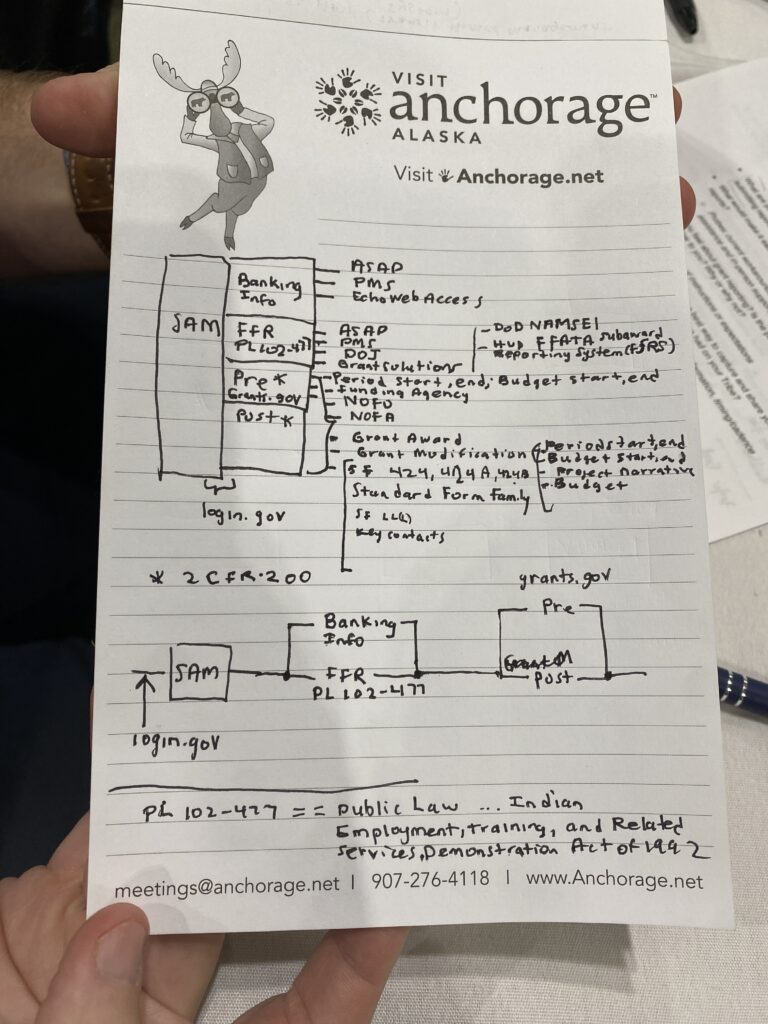 VISIT
anchorage™
ALASKA
Visit Anchorage.net
ASAP
Banking
Info
PMS
Echo Web Access
SAM
FFR
PL 102-477
ASAP
PMS
DOJ
GrantSolutions
- DoD NAMSEI
- HUD FFATA subaward
Reporting System (FSRS)
Pre*
Grants.gov
Period Start, end, Budget start, end
Funding Agency
NOFO
NOFA
Post*
Grant Award
Grant Modification
Period start, end
Budget start, end
Project narrative
Budget
SF 424, 424A, 424B
Standard Form Family
SF LL(L)
Key contacts
login.gov
* 2 CFR.200
grants.gov
Banking
Info
Pre
SAM
FFR
PL 102-477
Post
login.gov
PL 102-477 == Public Law ... Indian
Employment, training, and Related
Services, Demonstration Act of 1992
meetings@anchorage.net | 907-276-4118 | www.Anchorage.net